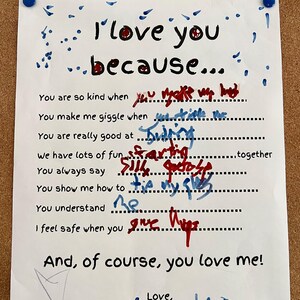 I love you
because...
You are so kind when you make my bed
You make me giggle when you
You are really good at
We have lots of fun together
You always say silly
You show me how to tie my
You understand Me
I feel safe when you give Hugs
And, of course, you love me!
Love,